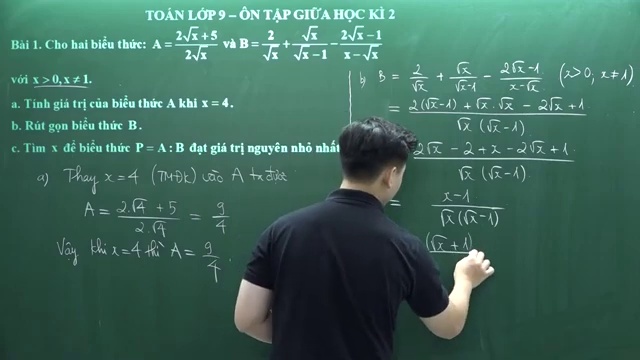 TOÁN LỚP 9 – ÔN TẬP GIỮA HỌC KÌ 2
Bài 1. Cho hai biểu thức: A = (2√x + 5)/(2√x) và B = 2/√x + √x/(√x − 1) − (2√x − 1)/(x − √x)
với x > 0, x ≠ 1.
a. Tính giá trị của biểu thức A khi x = 4.
b. Rút gọn biểu thức B.
c. Tìm x để biểu thức P = A : B đạt giá trị nguyên nhỏ nhất
a) Thay x = 4 (TMĐK) vào A ta được
A = (2.√4 + 5)/(2.√4) = 9/4
Vậy khi x = 4 thì A = 9/4.
b) B = 2/√x + √x/(√x − 1) − (2√x − 1)/(x − √x) (x > 0; x ≠ 1)
= (2(√x − 1) + √x.√x − 2√x + 1)/(√x (√x − 1))
2√x − 2 + x − 2√x + 1/(√x (√x − 1))
= (x − 1)/(√x (√x − 1))
(√x + 1)